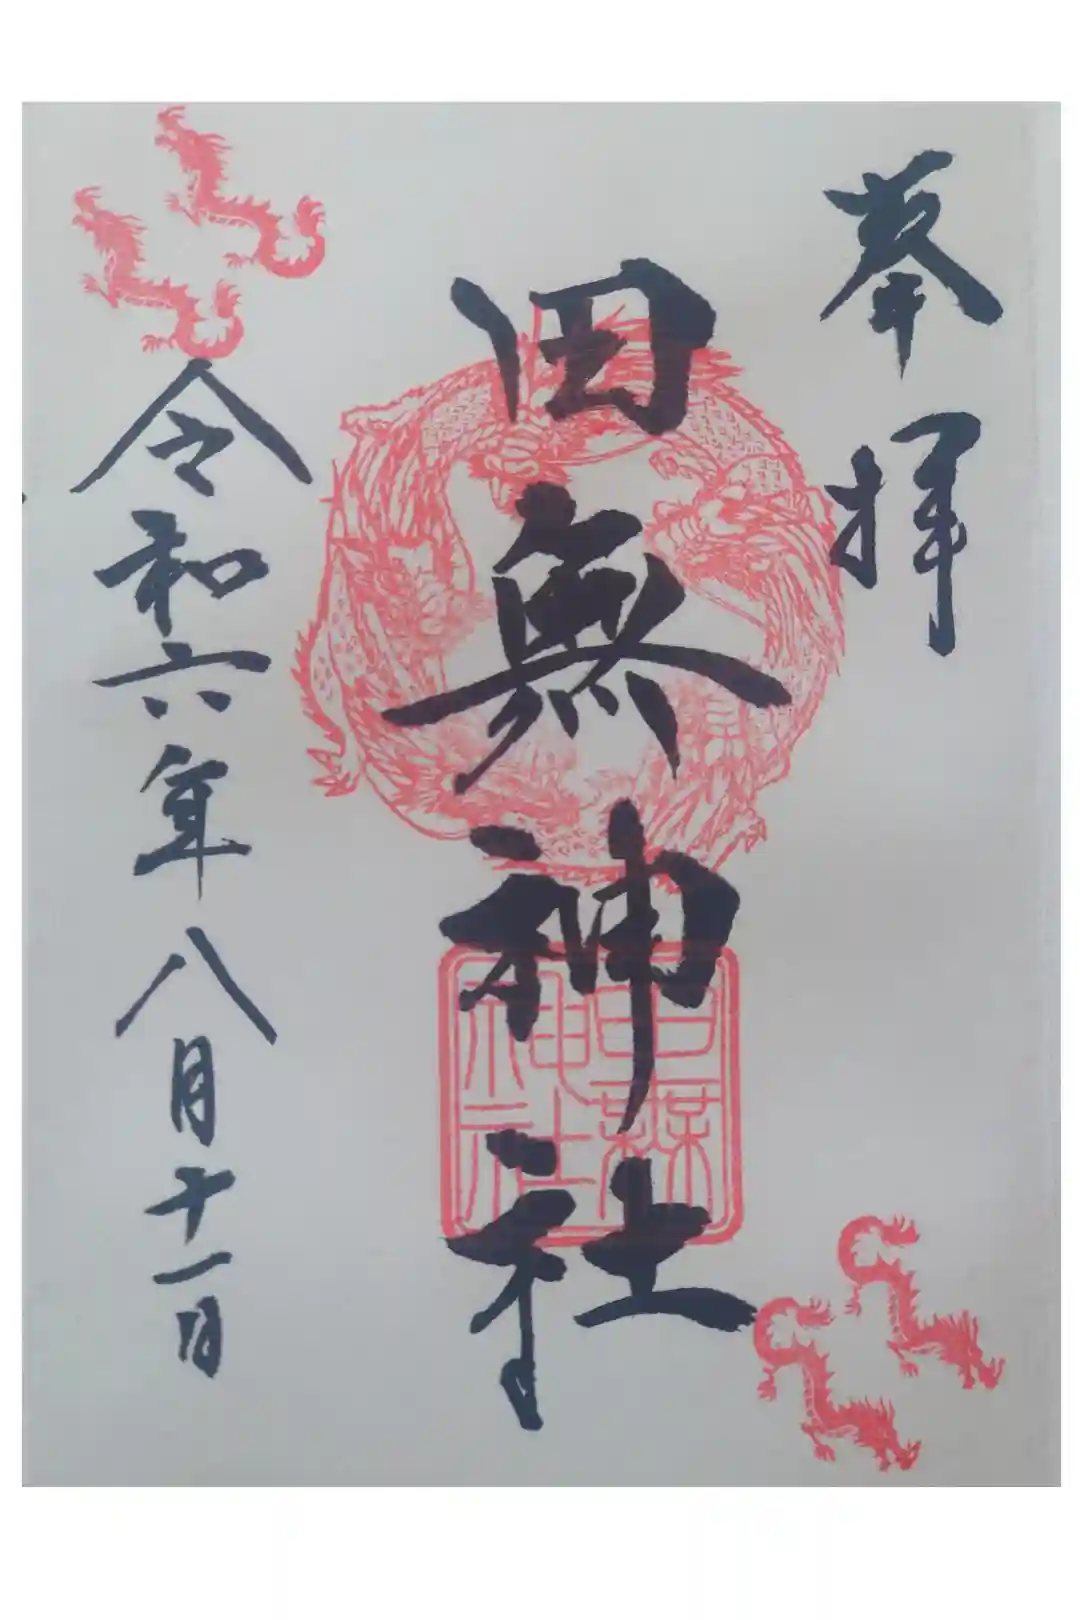 奉拝
田無神社
田無神社
令和六年八月十一日